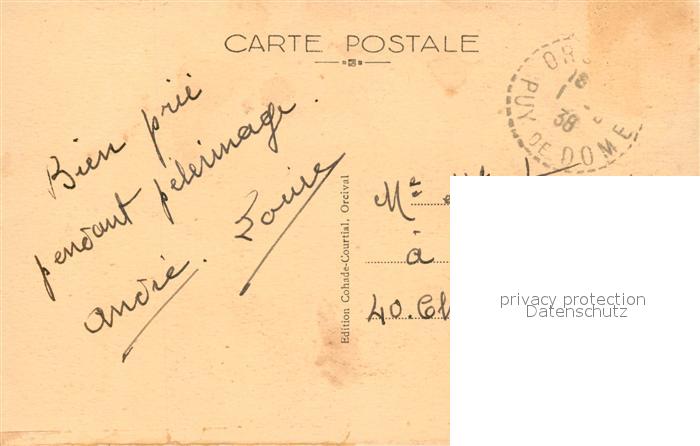 CARTE POSTALE
Bien prié
pendant pèlerimage.
André. Louise
Edition Cohade-Courtial, Orcival
OR
18
1
38
PUY DE DOME
Me
à
40. Cl
privacy protection
Datenschutz